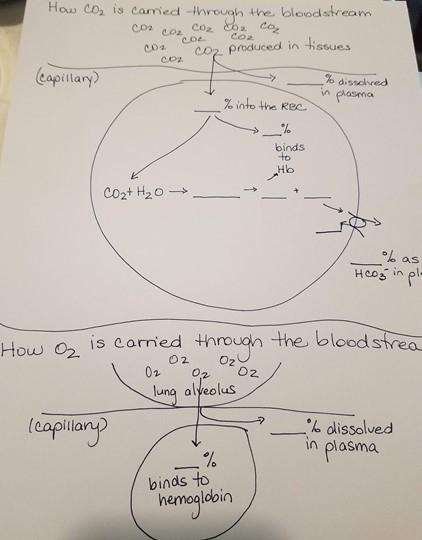 How CO2 is carried through the bloodstream
CO2 CO2 CO2 CO2 CO2
CO2 CO2 CO2
CO2 CO2 produced in tissues
(capillary)
___% dissolved
in plasma
___% into the RBC
___%
binds
to
Hb
CO2 + H2O → ______ → ___ + ___
___
___% as
HCO3⁻ in pl
How O2 is carried through the bloodstrea
O2 O2
O2 O2 O2
lung alveolus
(capillary)
___% dissolved
in plasma
___%
binds to
hemoglobin